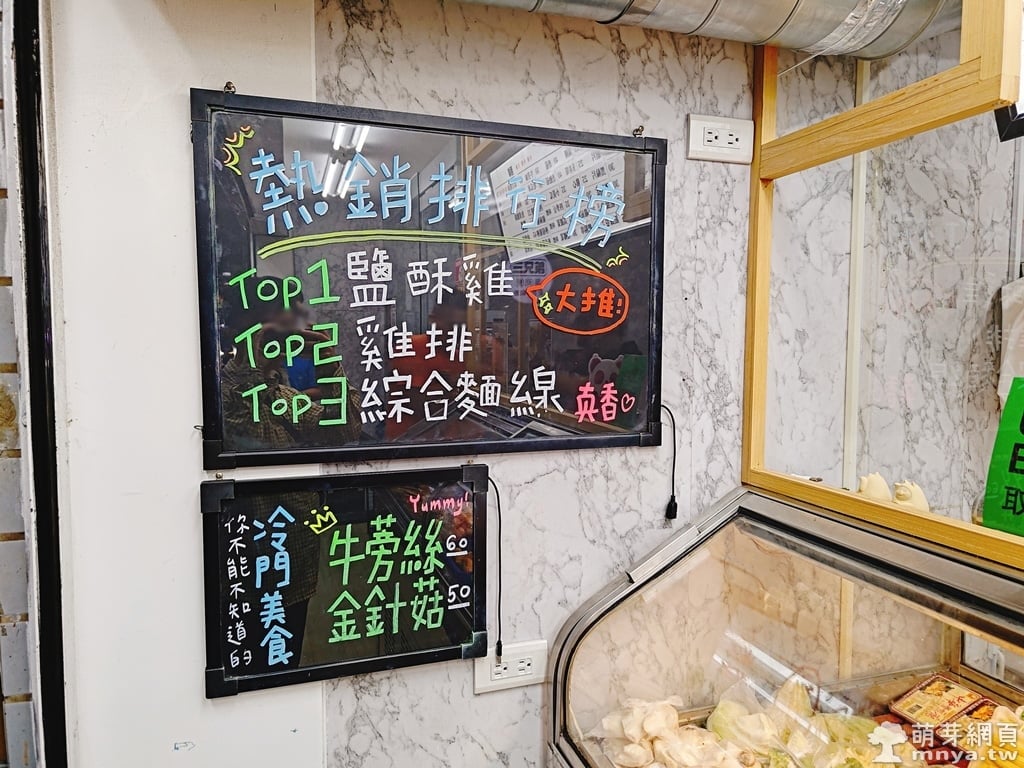 熱銷排行榜
Top1 鹽酥雞 大推!
Top2 雞排
Top3 綜合麵線 真香♡
你不能不知道的
冷門美食
Yummy!
牛蒡絲 60
金針菇 50
取
萌芽網頁
mnya.tw